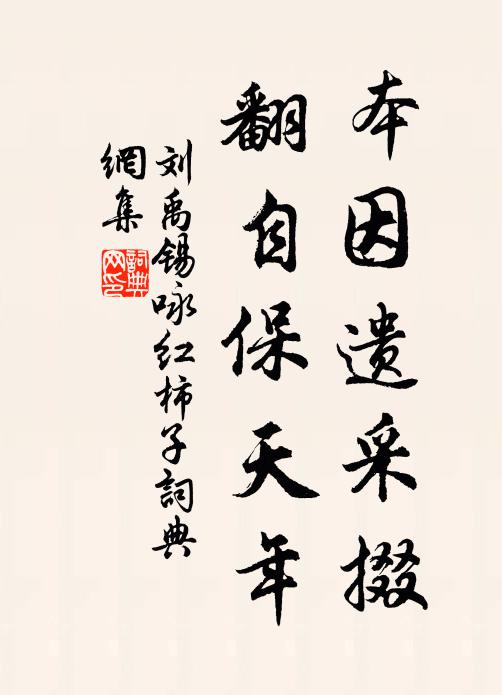 本因遗采掇
翻自保天年
刘禹锡咏红柿子詞典
網集
詞典
网印